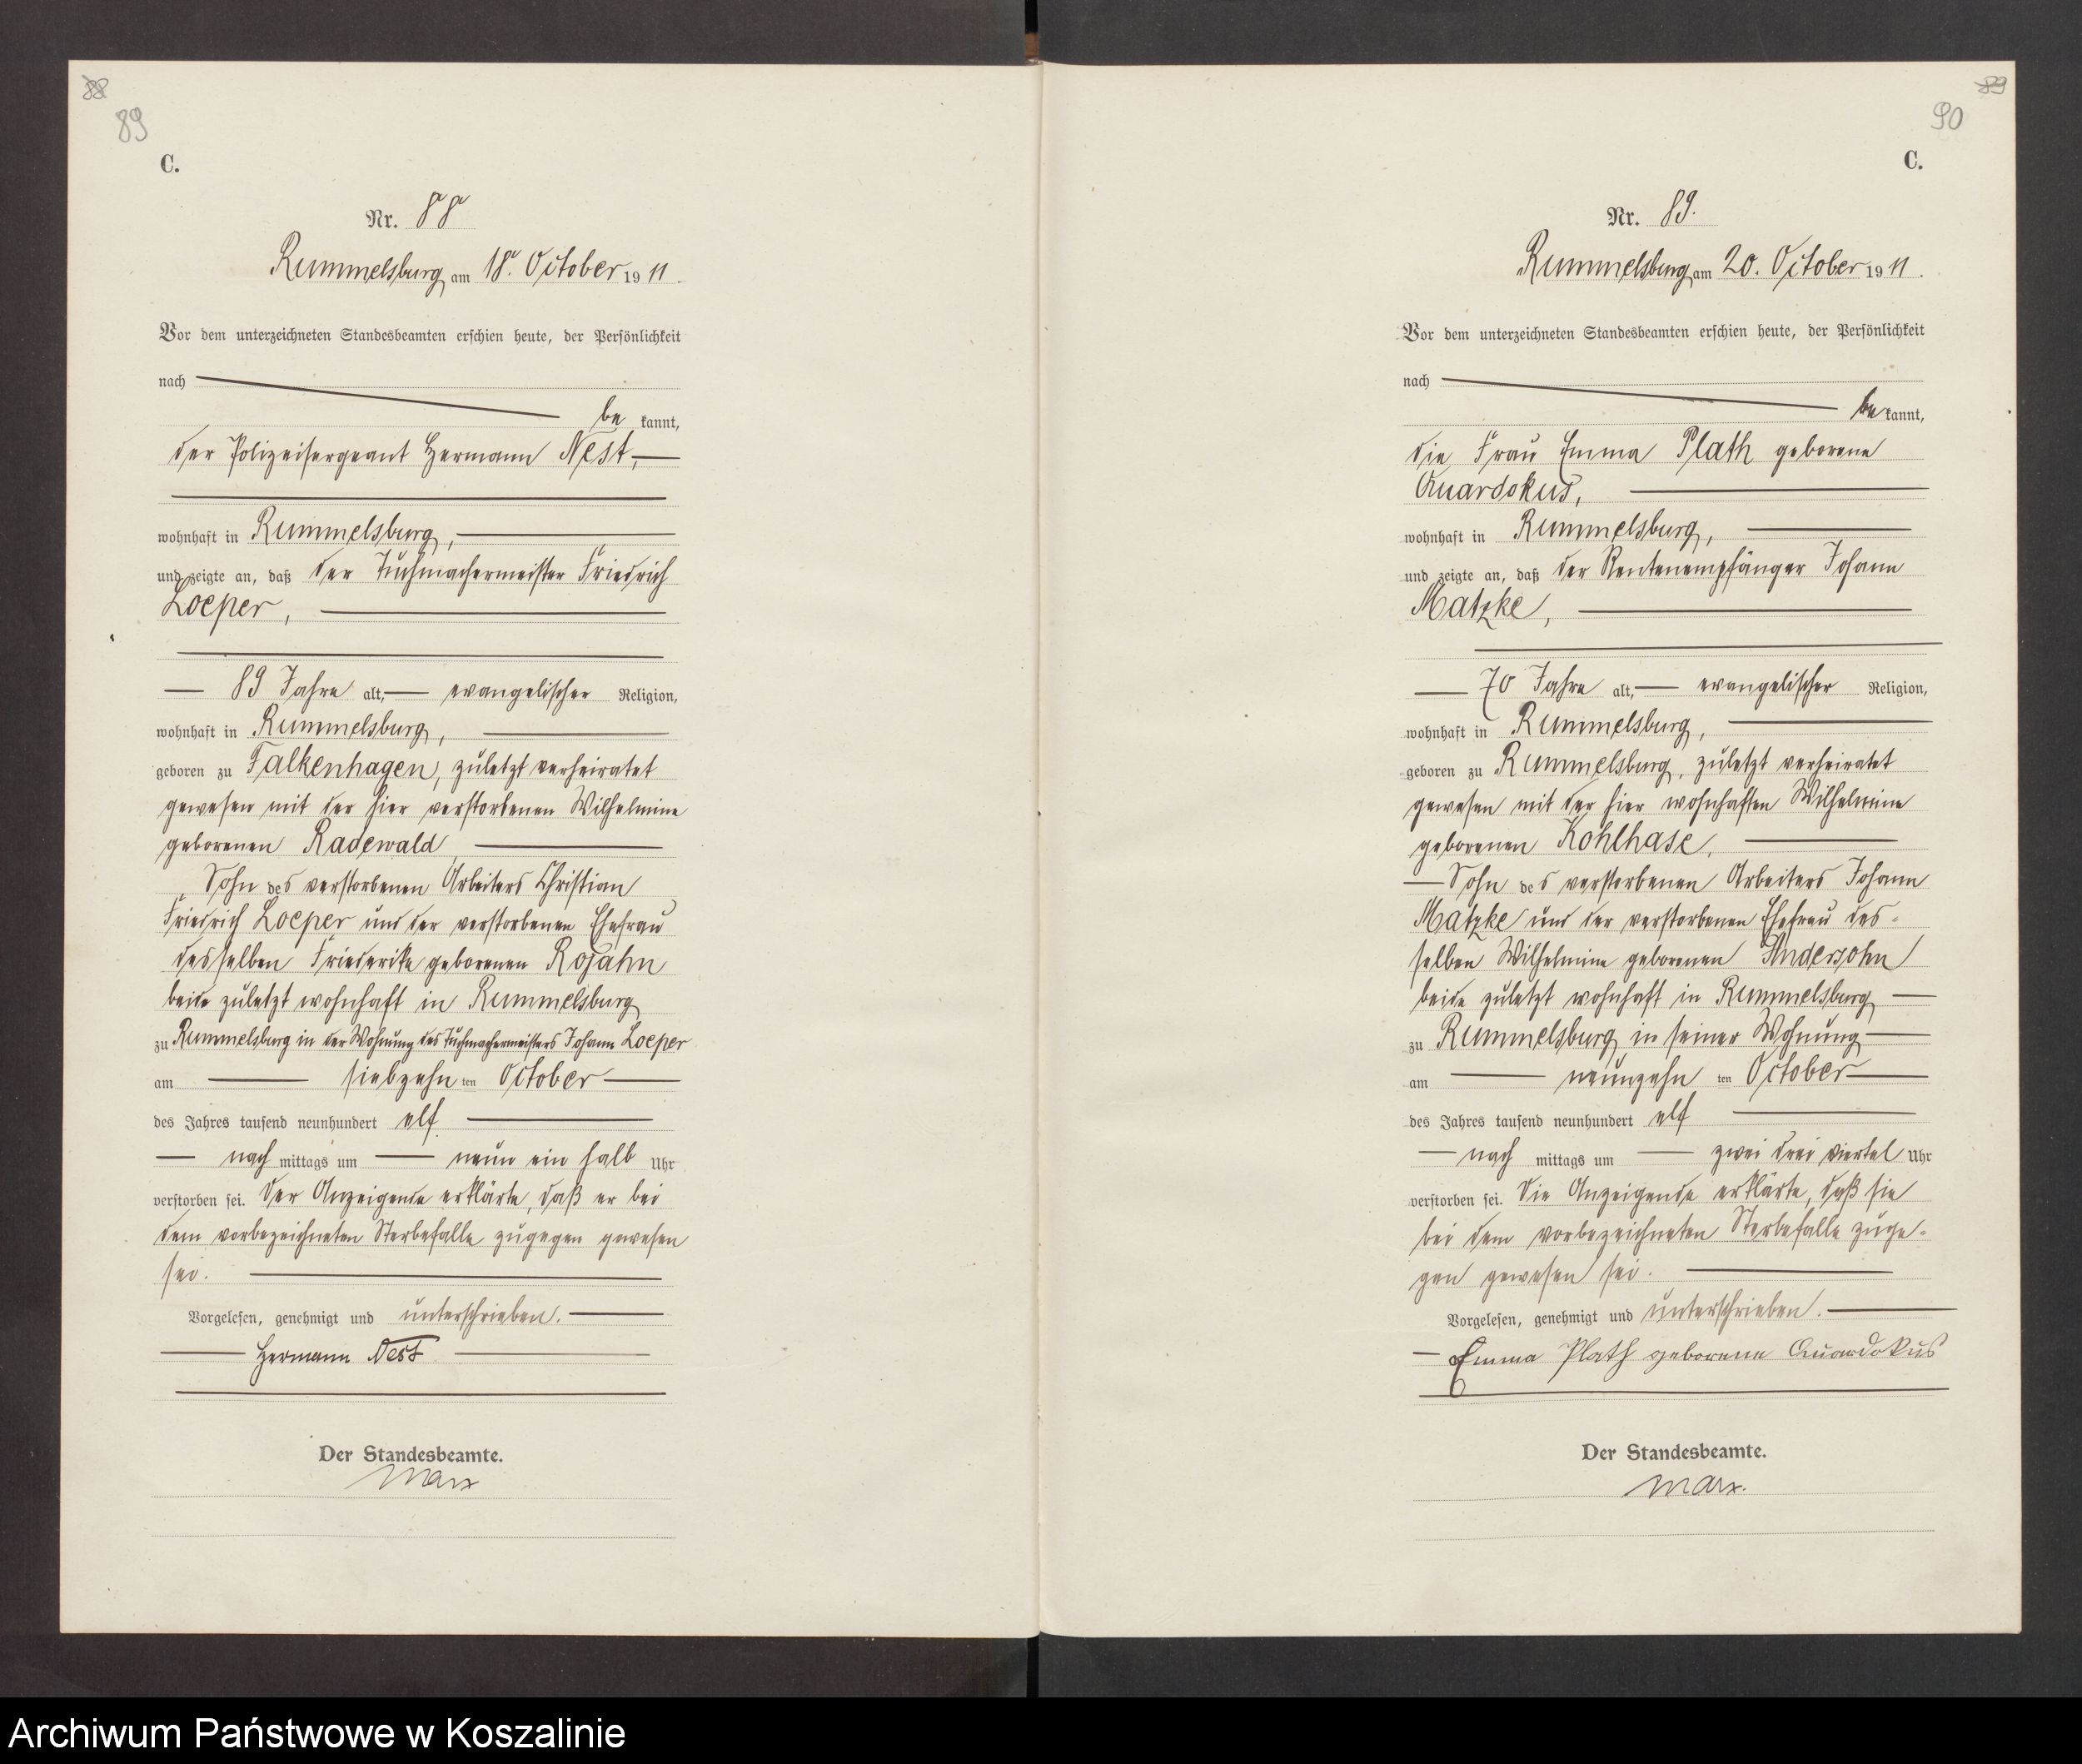 88
89
C.
Nr. 88
Rummelsburg am 18. October 1911.
Vor dem unterzeichneten Standesbeamten erschien heute, der Persönlichkeit
nach
be kannt,
der Polizeisergeant Hermann Nest,
wohnhaft in Rummelsburg,
und zeigte an, daß der Tuchmachermeister Friedrich
Loeper,
89 Jahre alt, evangelischer Religion,
wohnhaft in Rummelsburg,
geboren zu Falkenhagen, zuletzt verheiratet
gewesen mit der hier verstorbenen Wilhelmine
geborenen Radewald
Sohn des verstorbenen Arbeiters Christian
Friedrich Loeper und der verstorbenen Ehefrau
desselben Friederike geborenen Rojahn
beide zuletzt wohnhaft in Rummelsburg
zu Rummelsburg in der Wohnung des Tuchmachermeisters Johann Loeper
am siebzehn ten October
des Jahres tausend neunhundert elf
nach mittags um neun ein halb Uhr
verstorben sei. Der Anzeigende erklärte, daß er bei
dem vorbezeichneten Sterbefalle zugegen gewesen
sei.
Vorgelesen, genehmigt und unterschrieben.
Hermann Nest
Der Standesbeamte.
Marx
89
90
C.
Nr. 89.
Rummelsburg am 20. October 1911.
Vor dem unterzeichneten Standesbeamten erschien heute, der Persönlichkeit
nach
be kannt,
die Frau Emma Plath geborene
Quardokus,
wohnhaft in Rummelsburg,
und zeigte an, daß der Rentenempfänger Johann
Matzke,
70 Jahre alt, evangelischer Religion,
wohnhaft in Rummelsburg,
geboren zu Rummelsburg, zuletzt verheiratet
gewesen mit der hier wohnhaften Wilhelmine
geborenen Kohlhase,
Sohn des verstorbenen Arbeiters Johann
Matzke und der verstorbenen Ehefrau des-
selben Wilhelmine geborenen Andersohn
beide zuletzt wohnhaft in Rummelsburg
zu Rummelsburg in seiner Wohnung
am neunzehn ten October
des Jahres tausend neunhundert elf
nach mittags um zwei drei viertel Uhr
verstorben sei. Die Anzeigende erklärte, daß sie
bei dem vorbezeichneten Sterbefalle zuge-
gen gewesen sei.
Vorgelesen, genehmigt und unterschrieben.
Emma Plath geborene Quardokus
Der Standesbeamte.
Marx.
Archiwum Państwowe w Koszalinie